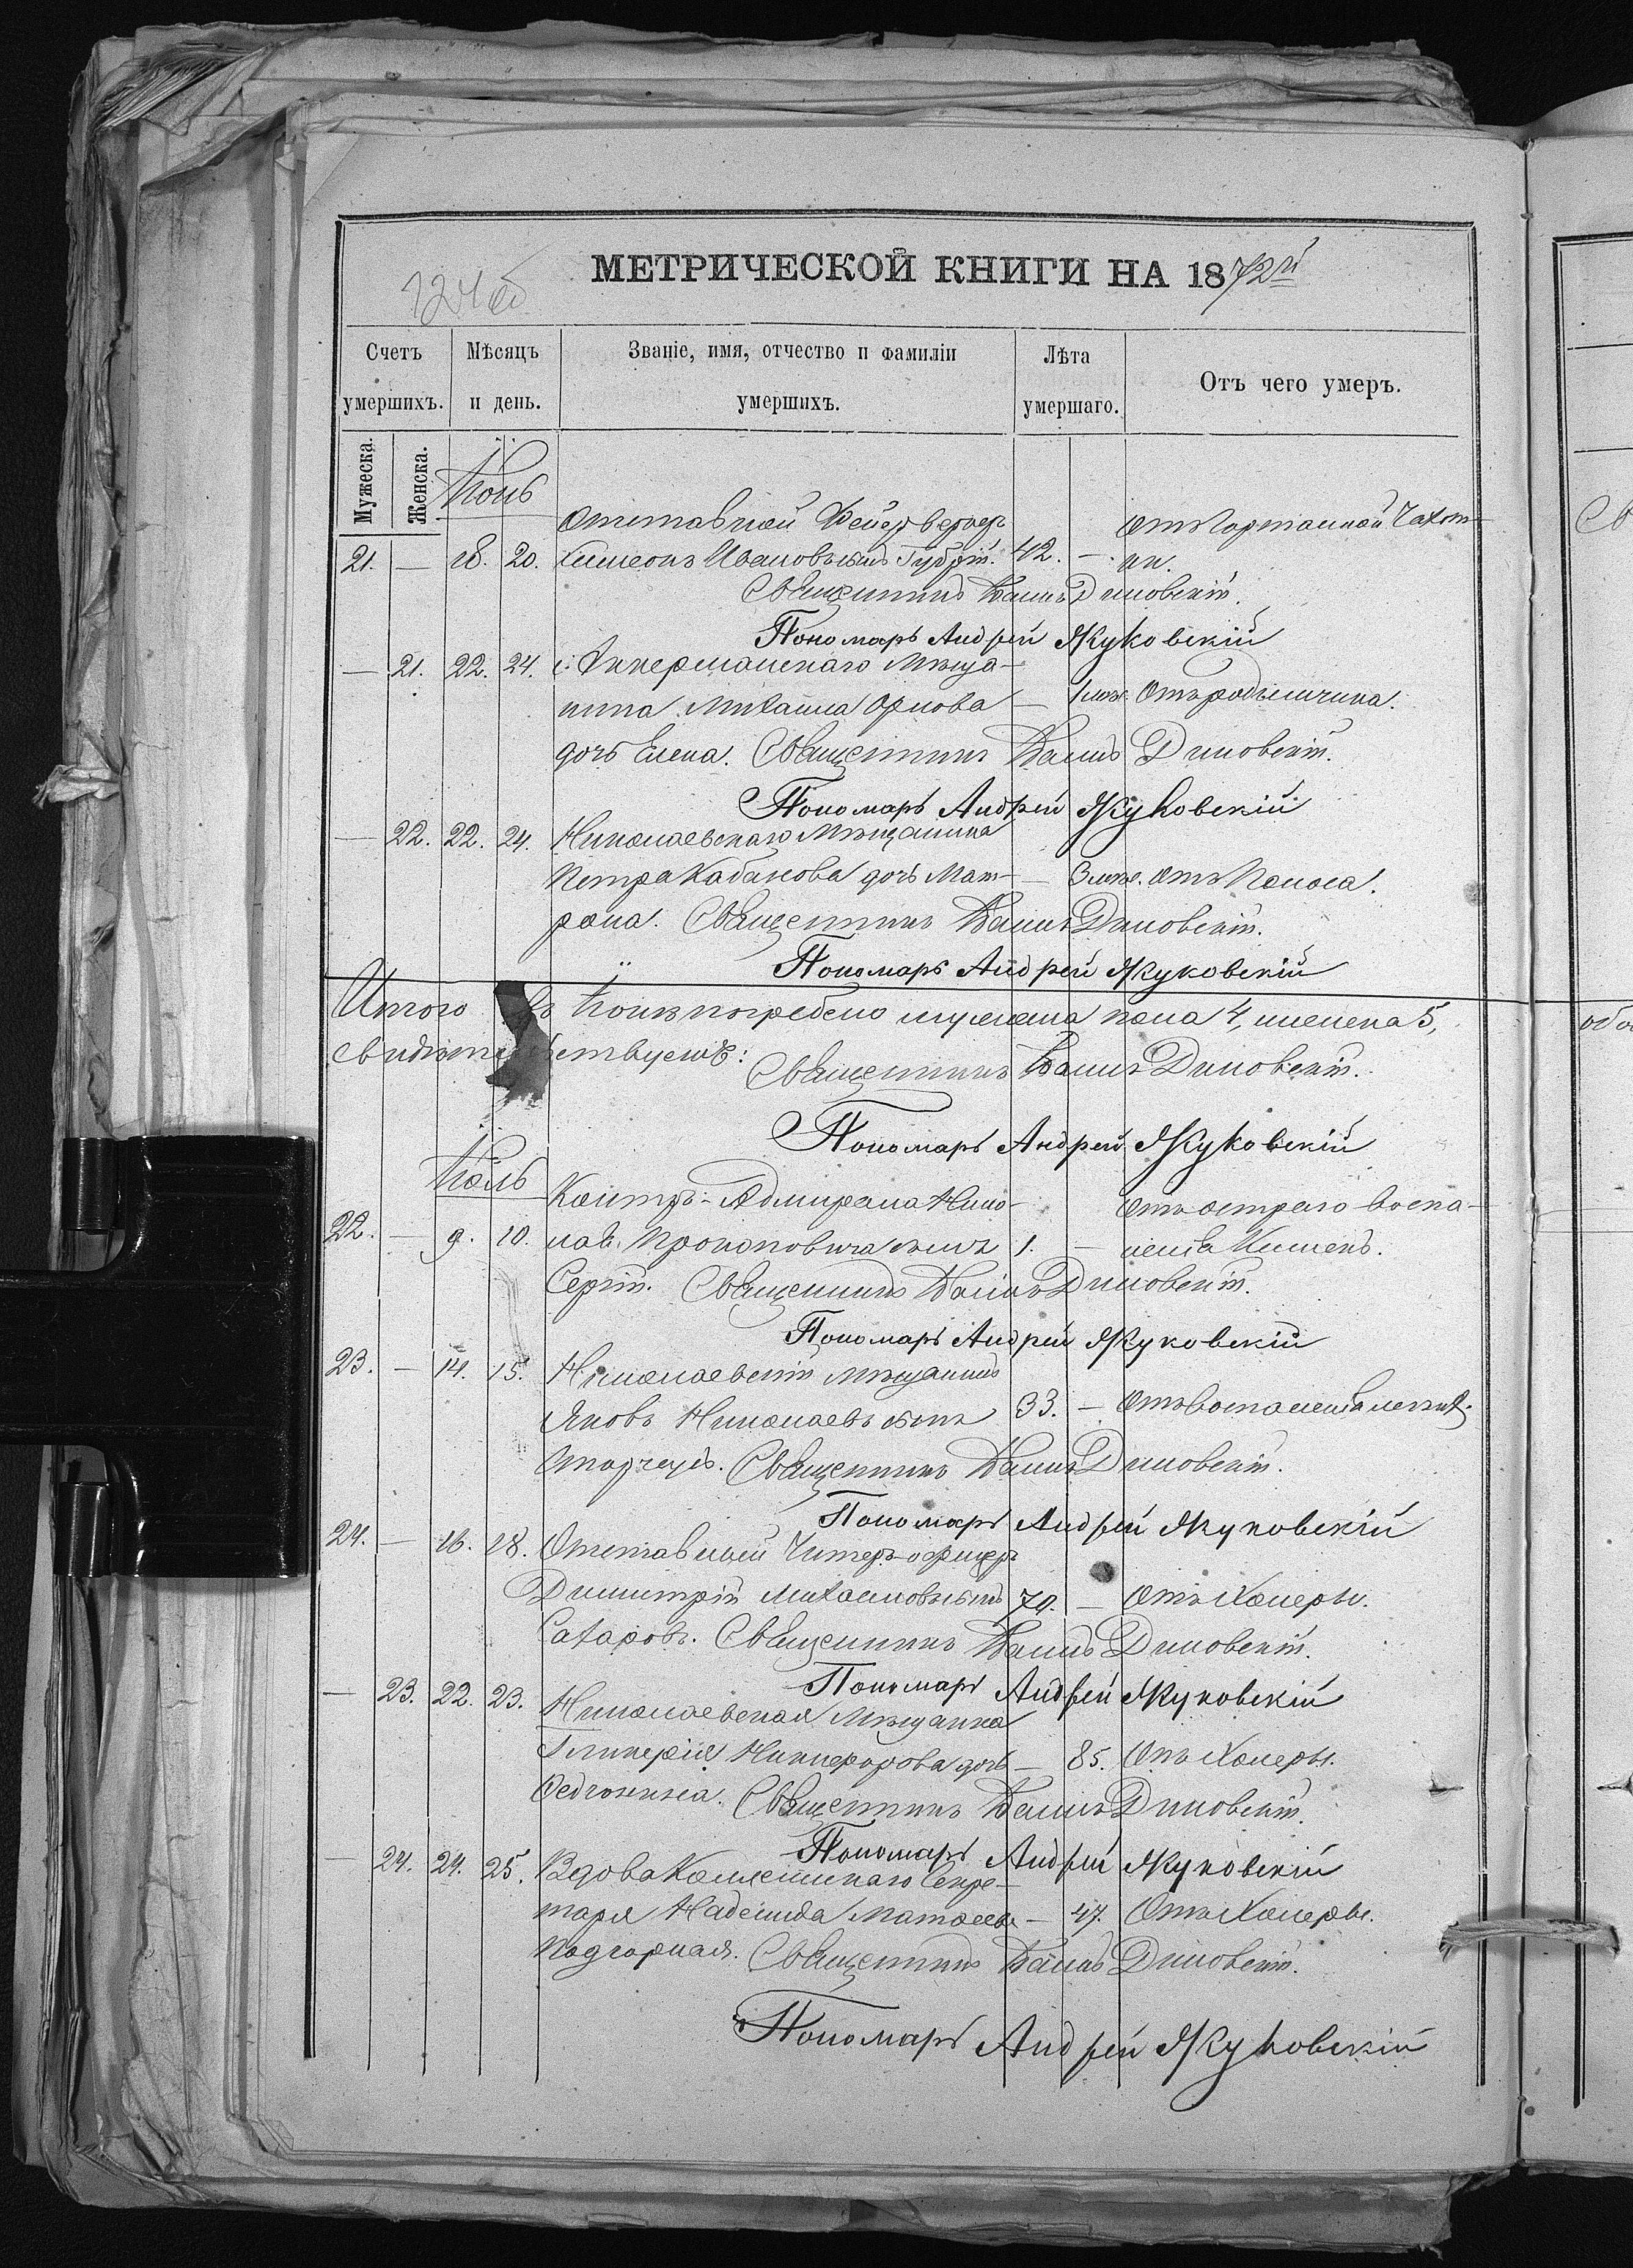 МЕТРИЧЕСКОЙ КНИГИ НА 1872й
124об
Счетъ умершихъ.
Мѣсяцъ и день.
Званіе, имя, отчество и фамиліи умершихъ.
Лѣта умершаго.
Отъ чего умеръ.
Мужеска.
Женска.
Іюнь
Отставной Фейерверкер отъ Горманной Чахот-
21. — 18. 20. Симеонъ Ивановъ сынъ 42. — ки.
Священникъ Василій Диковскій.
Пономарь Андрей Жуковскій
— 21. 22. 24. Аккерманскаго Мѣща-
нина Михаила Орлова — 1 мѣс. Отъ родимчика.
дочь Елена. Священникъ Диковскій.
Пономарь Андрей Жуковскій
— 22. 22. 24. Николаевскаго Мѣщанина
Петра Кабанова дочь Мат- — 3 мѣс. отъ Поноса.
рона. Священникъ Диковскій.
Пономарь Андрей Жуковскій
Итого въ Іюнѣ погребено мужеска пола 4, женска 5,
свидѣтельствуемъ:
Священникъ Диковскій.
Пономарь Андрей Жуковскій
Іюль
Контръ-Адмирала Нико- Отъ остраго воспа-
22. — 9. 10. лая Прокоповича сынъ 1. — ленія Кишекъ.
Сергій. Священникъ Диковскій.
Пономарь Андрей Жуковскій
23. — 14. 15. Николаевскій мѣщанинъ
Яковъ Николаевъ сынъ 33. — Отъ воспаленія легкихъ.
Священникъ Диковскій.
Пономарь Андрей Жуковскій
24. — 16. 18. Отставный Унтеръ-офицеръ
Димитрій Михаиловъ сынъ 70. — Отъ Холеры.
Сахаровъ. Священникъ Диковскій.
Пономарь Андрей Жуковскій
— 23. 22. 23. Николаевская Мѣщанка
Гликерія Никифорова дочь — 85. Отъ Холеры.
Священникъ Диковскій.
Пономарь Андрей Жуковскій
— 24. 24. 25. Вдова Коллежскаго Секре-
таря Надежда Матвеева — 47. Отъ Холеры.
Подгорная. Священникъ Диковскій.
Пономарь Андрей Жуковскій